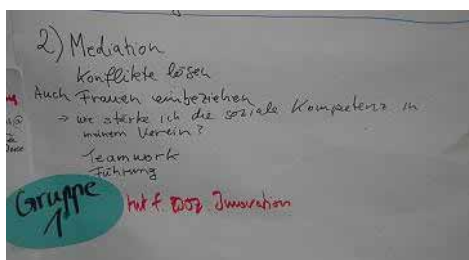 2) Mediation
Konflikte lösen
Auch Frauen einbeziehen
→ wie stärke ich die soziale Kompetenz in
meinem Verein?
Teamwork
Führung
Gruppe
1
f. soz. Innovation